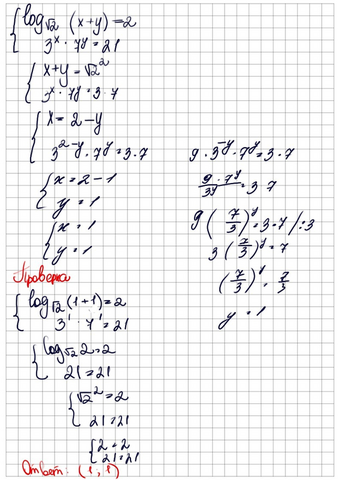 log√2 (x+y) = 2
3^x · 7^y = 21
x+y = √2^2
3^x · 7^y = 3·7
x = 2-y
3^(2-y) · 7^y = 3·7
x = 2-1
y = 1
x = 1
y = 1
9 · 3^(-y) · 7^y = 3·7
9·7^y / 3^y = 3·7
9 (7/3)^y = 3·7 /:3
3 (7/3)^y = 7
(7/3)^y = 7/3
y = 1
Проверка
log√2 (1+1) = 2
3^1 · 7^1 = 21
log√2 2 = 2
21 = 21
√2^2 = 2
21 = 21
2 = 2
21 = 21
Ответ: (1, 1)